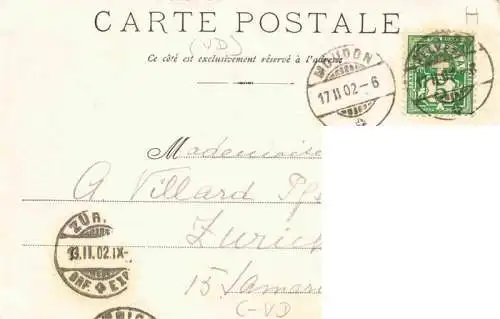 H
CARTE POSTALE
(VD)
Ce côté est exclusivement réservé à l'adresse
MOUDON
17 II 02 - 6
Mademoise
A. Villard Pfs
Zurich
15
(-VD
ZÜR
13.II.02.IX-
BRF. EXP